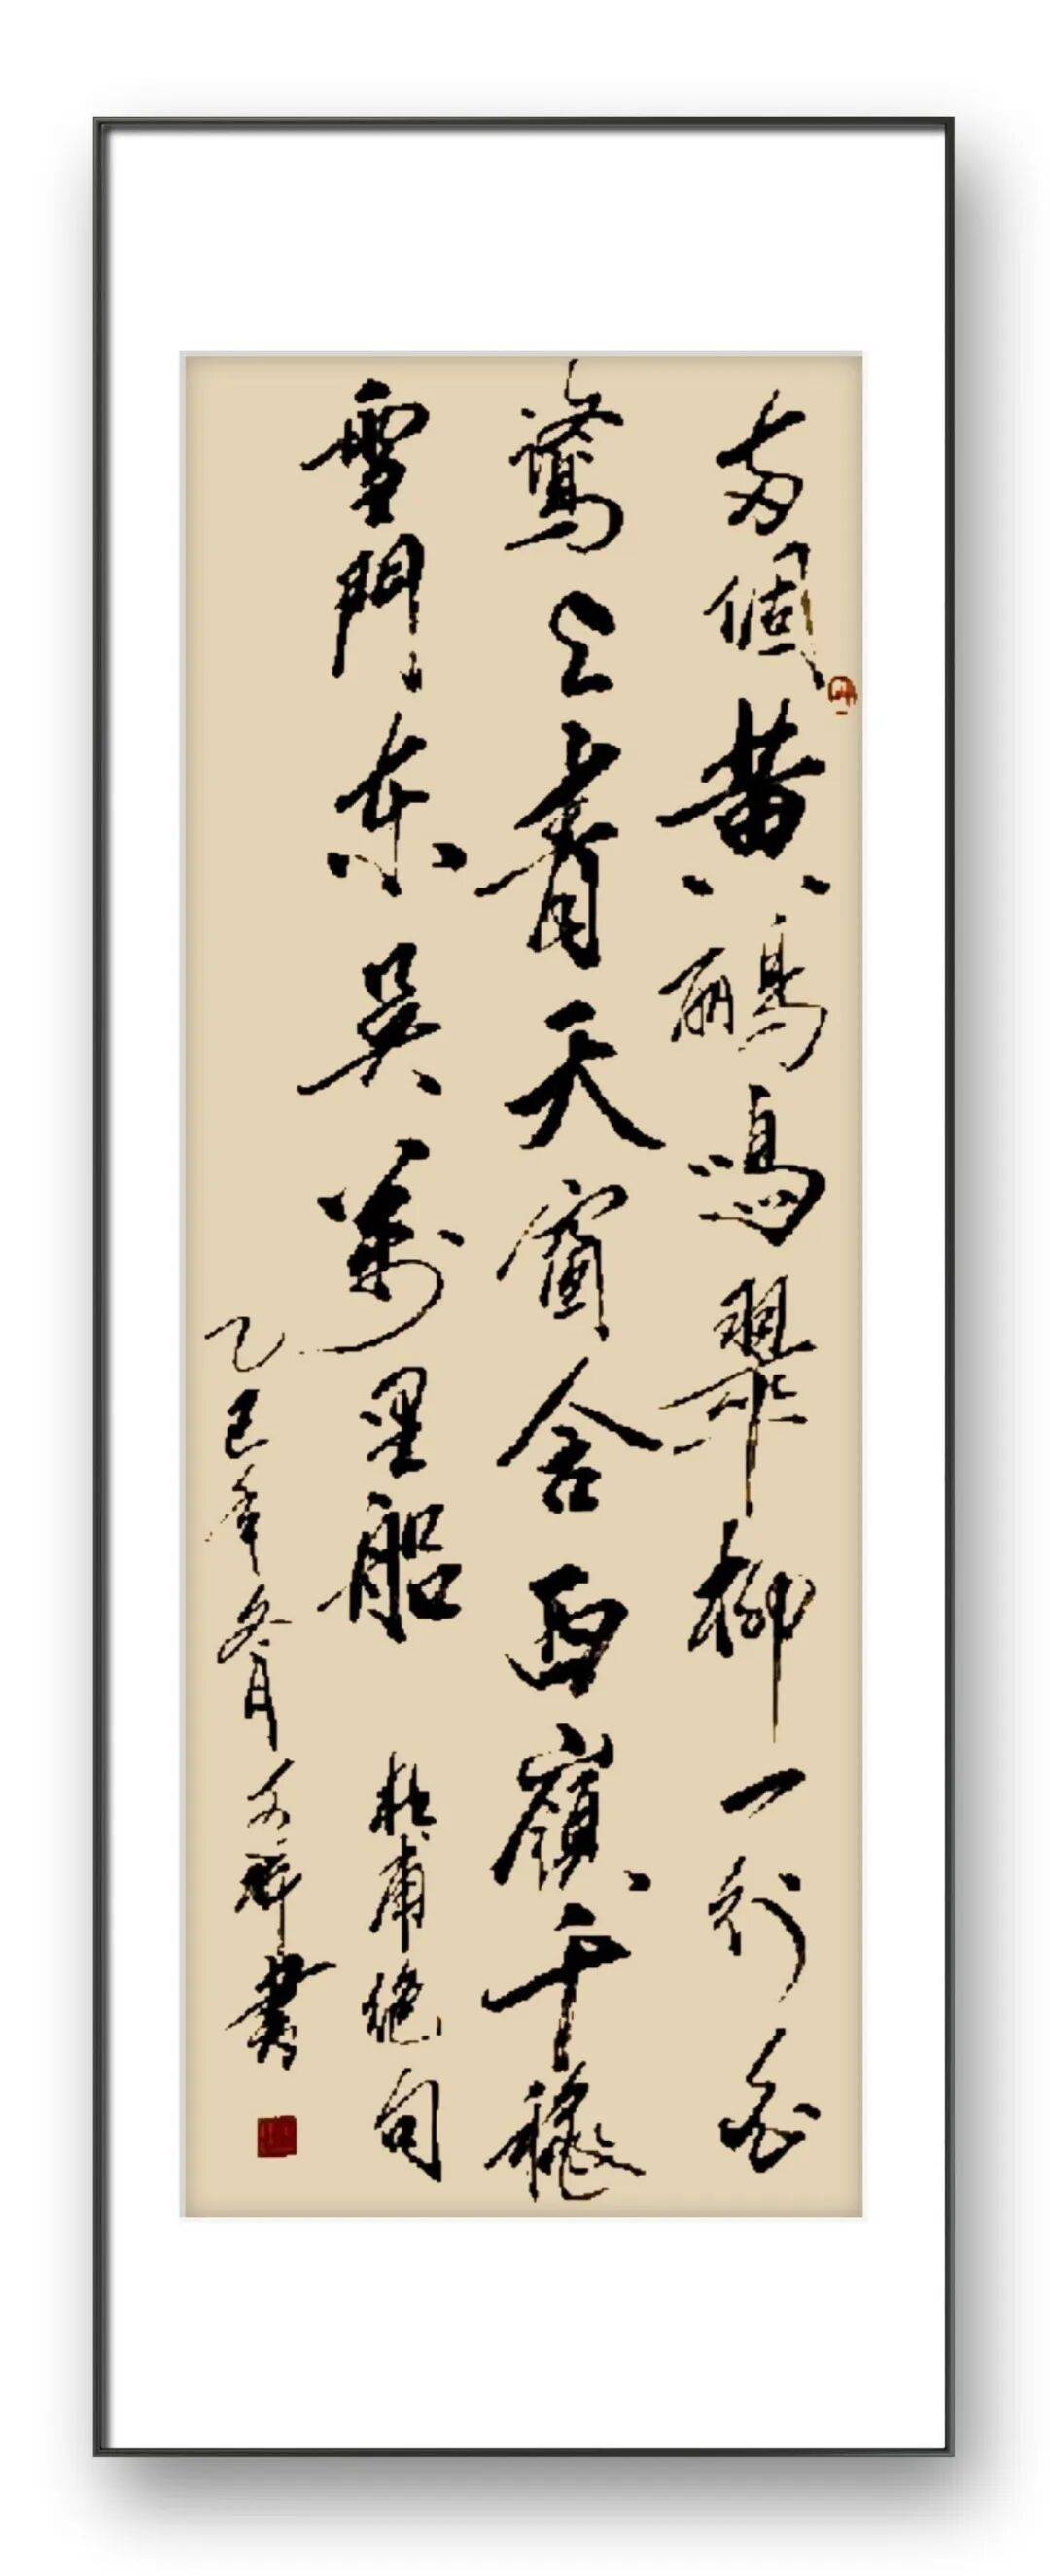 兩個黃鸝鳴翠柳一行白
鷺上青天窗含西嶺千穐
雪門東吳萬里船 杜甫絕句
乙巳年冬月書